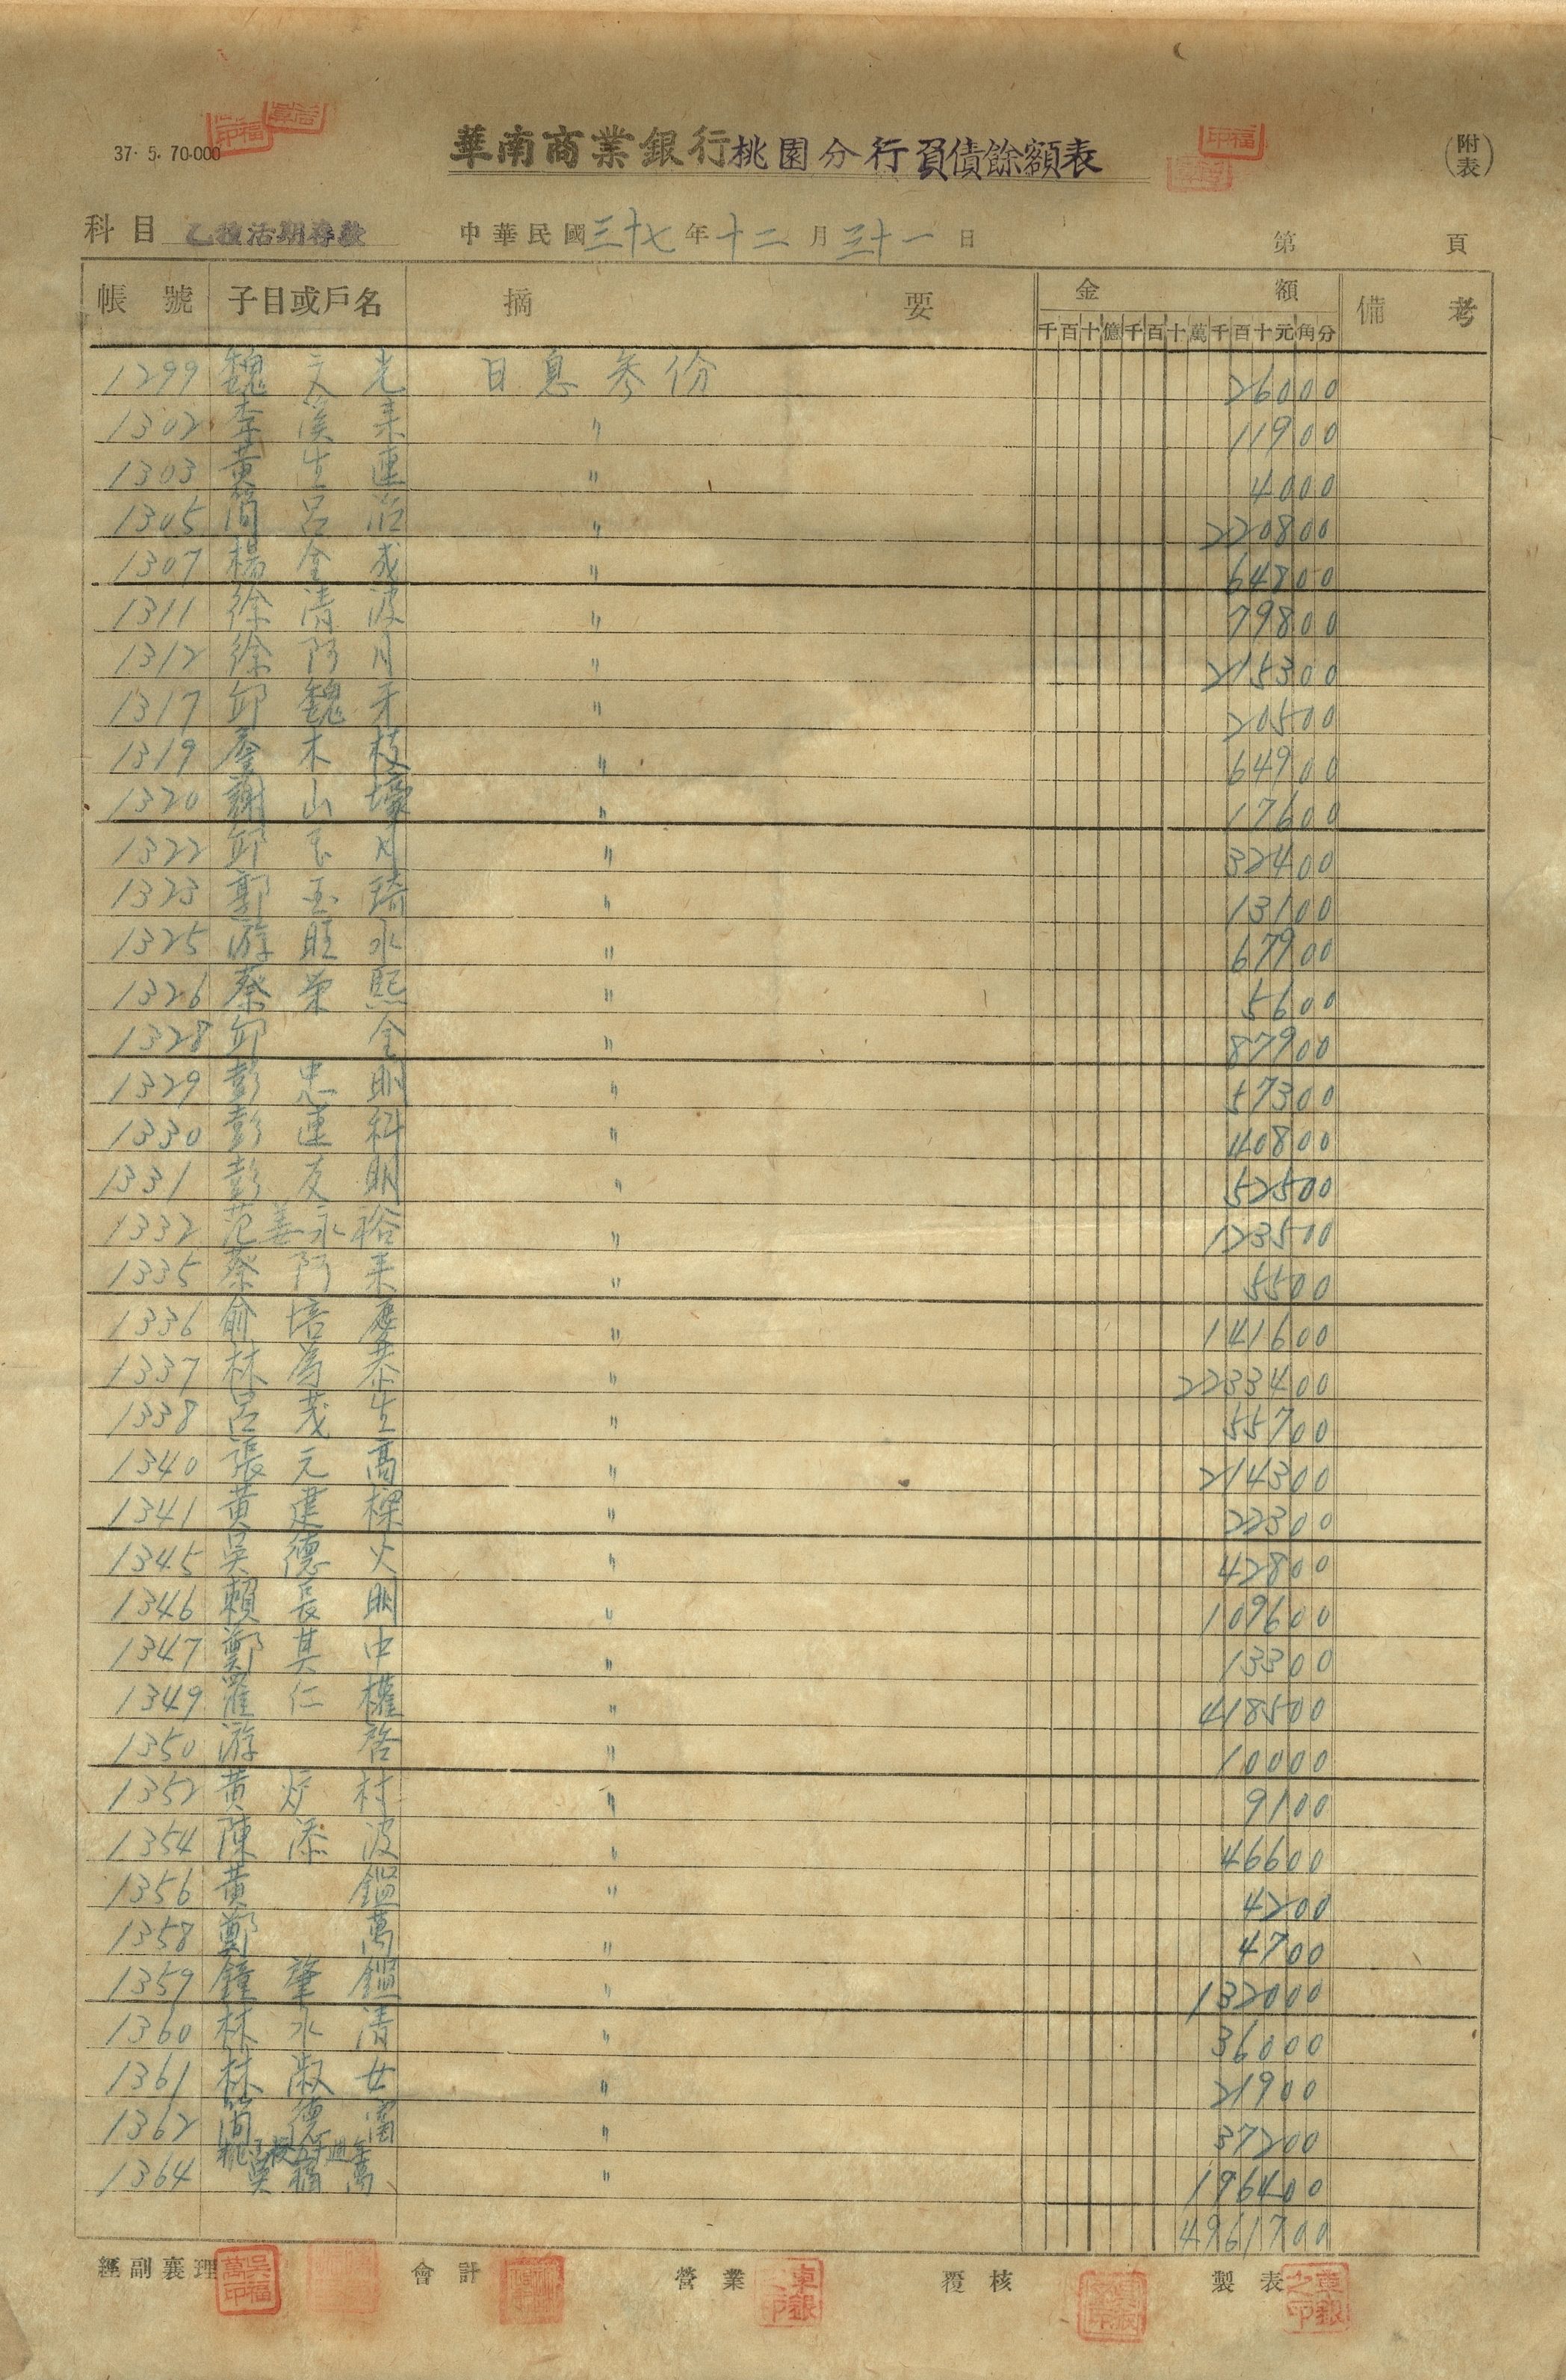 37. 5. 70.000
華南商業銀行桃園分行負債餘額表
(附表)
科目 乙種活期存款 中華民國三十七年十二月三十一日 第 頁
帳號 子目或戶名 摘要 金額 備考
千百十億千百十萬千百十元角分
1299 魏文光 日息参份 26000
1302 李溪来 〃 11900
1303 黄生連 〃 4000
1305 簡呂治 〃 220800
1307 楊金成 〃 64800
1311 徐清波 〃 79800
1312 徐阿月 〃 215300
1317 邱魏牙 〃 20500
1319 詹木枝 〃 64900
1320 謝山壕 〃 17600
1322 邱玉月 〃 32400
1323 郭玉琦 〃 13100
1325 游旺水 〃 67900
1326 蔡荣熙 〃 5600
1328 邱全 〃 87900
1329 彭忠則 〃 57300
1330 彭運科 〃 40800
1331 彭友明 〃 52500
1332 范姜永裕 〃 123500
1335 蔡阿来 〃 5500
1336 俞培應 〃 141600
1337 林為恭 〃 2233400
1338 呂茂生 〃 55700
1340 張元高 〃 214300
1341 黄建樑 〃 22300
1345 吳德火 〃 42800
1346 賴長明 〃 109600
1347 鄭其中 〃 13300
1349 羅仁權 〃 418500
1350 游啓 〃 10000
1352 黄炉村 〃 9100
1354 陳添波 〃 46600
1356 黄鑑 〃 4200
1358 鄭萬 〃 4700
1359 鐘肇鑑 〃 132000
1360 林水清 〃 36000
1361 林淑女 〃 21900
1362 簡德 〃 37200
1364 吳福萬 〃 196400
4961700
經副襄理 會計 營業 覆核 製表
吳福萬印
卓銀
章銀之印